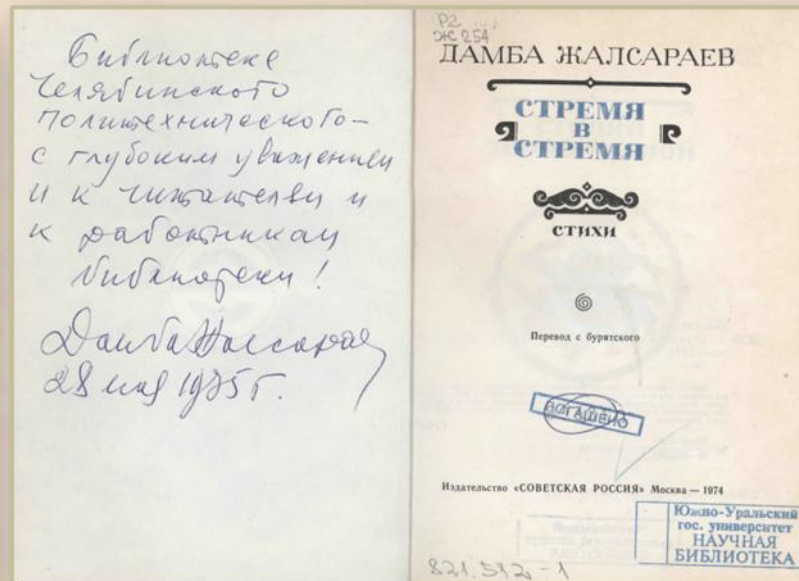 Библиотеке
Челябинского
политехнического –
с глубоким уважением
и к читателям и
к работникам
библиотеки!
Дамба Жалсараев
28 мая 1975 г.
Р2
Ж 254
ДАМБА ЖАЛСАРАЕВ
СТРЕМЯ
В
СТРЕМЯ
СТИХИ
Перевод с бурятского
ПОГАШЕНО
Издательство «СОВЕТСКАЯ РОССИЯ» Москва — 1974
Южно-Уральский
гос. университет
НАУЧНАЯ
БИБЛИОТЕКА
821.512-1